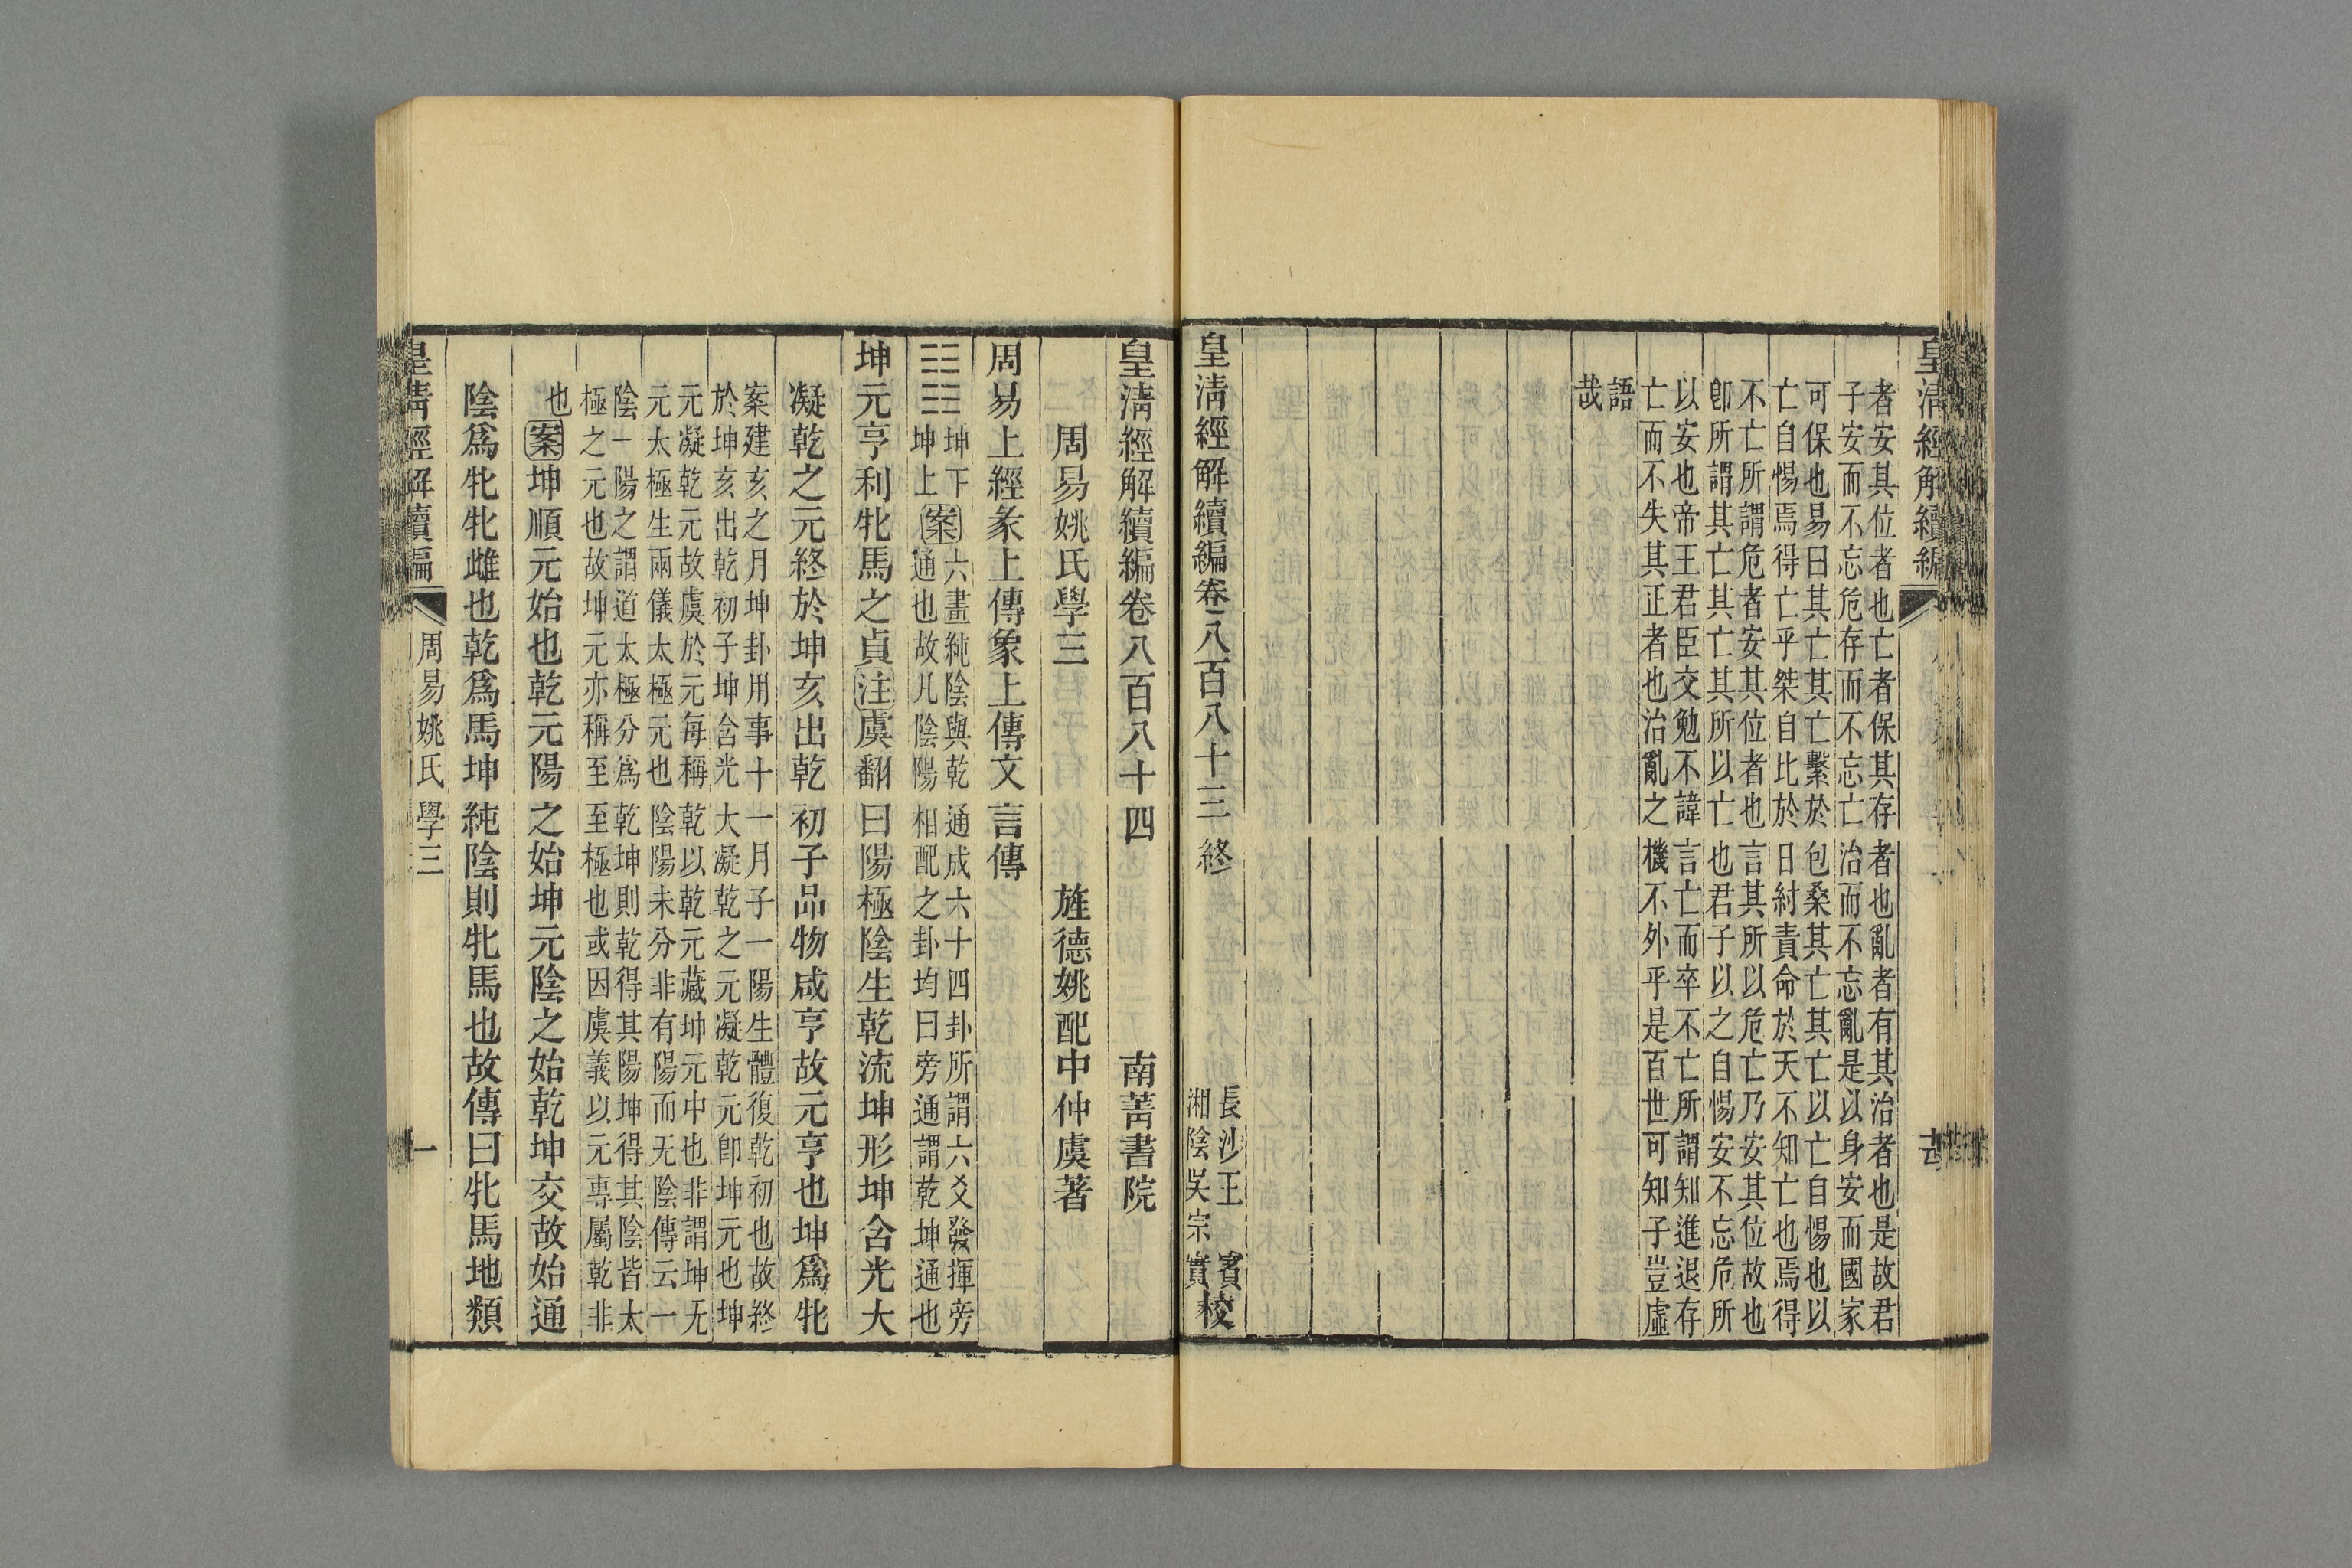 皇清經解續編
者安其位者也亡者保其存者也亂者有其治者也是故君
子安而不忘危存而不忘亡治而不忘亂是以身安而國家
可保也易曰其亡其亡繫於包桑其亡其亡以亡自惕也以
亡自惕焉得亡乎桀自比於日紂責命於天不知亡也焉得
不亡所謂危者安其位者也言其所以危亡乃安其位故也
卽所謂其亡其亡其所以亡也君子以之自惕安不忘危所
以安也帝王君臣交勉不諱言亡而卒不亡所謂知進退存
亡而不失其正者也治亂之機不外乎是百世可知子豈虛
語
哉
皇清經解續編卷八百八十三終
長沙王
湘陰吳宗
賓
實
校
皇清經解續編卷八百八十四
南菁書院
周易姚氏學三
旌德姚配中仲虞著
周易上經彖上傳象上傳文言傳
䷁
坤下
坤上
案
六畫純陰與乾通成六十四卦所謂六爻發揮旁
通也故凡陰陽相配之卦均曰旁通謂乾坤通也
坤元亨利牝馬之貞注虞翻曰陽極陰生乾流坤形坤含光大
凝乾之元終於坤亥出乾初子品物咸亨故元亨也坤爲牝
案建亥之月坤卦用事十一月子一陽生體復乾初也故終
於坤亥出乾初子坤含光大凝乾之元凝乾元卽坤元也坤
元凝乾元故虞於元每稱乾以乾元藏坤元中也非謂坤无
元太極生兩儀太極元也陰陽未分非有陽而无陰傳云一
陰一陽之謂道太極分爲乾坤則乾得其陽坤得其陰皆太
極之元也故坤元亦稱至至極也或因虞義以元專屬乾非
也
案坤順元始也乾元陽之始坤元陰之始乾坤交故始通
陰爲牝牝雌也乾爲馬坤純陰則牝馬也故傳曰牝馬地類
皇清經解續編
周易姚氏學三
一